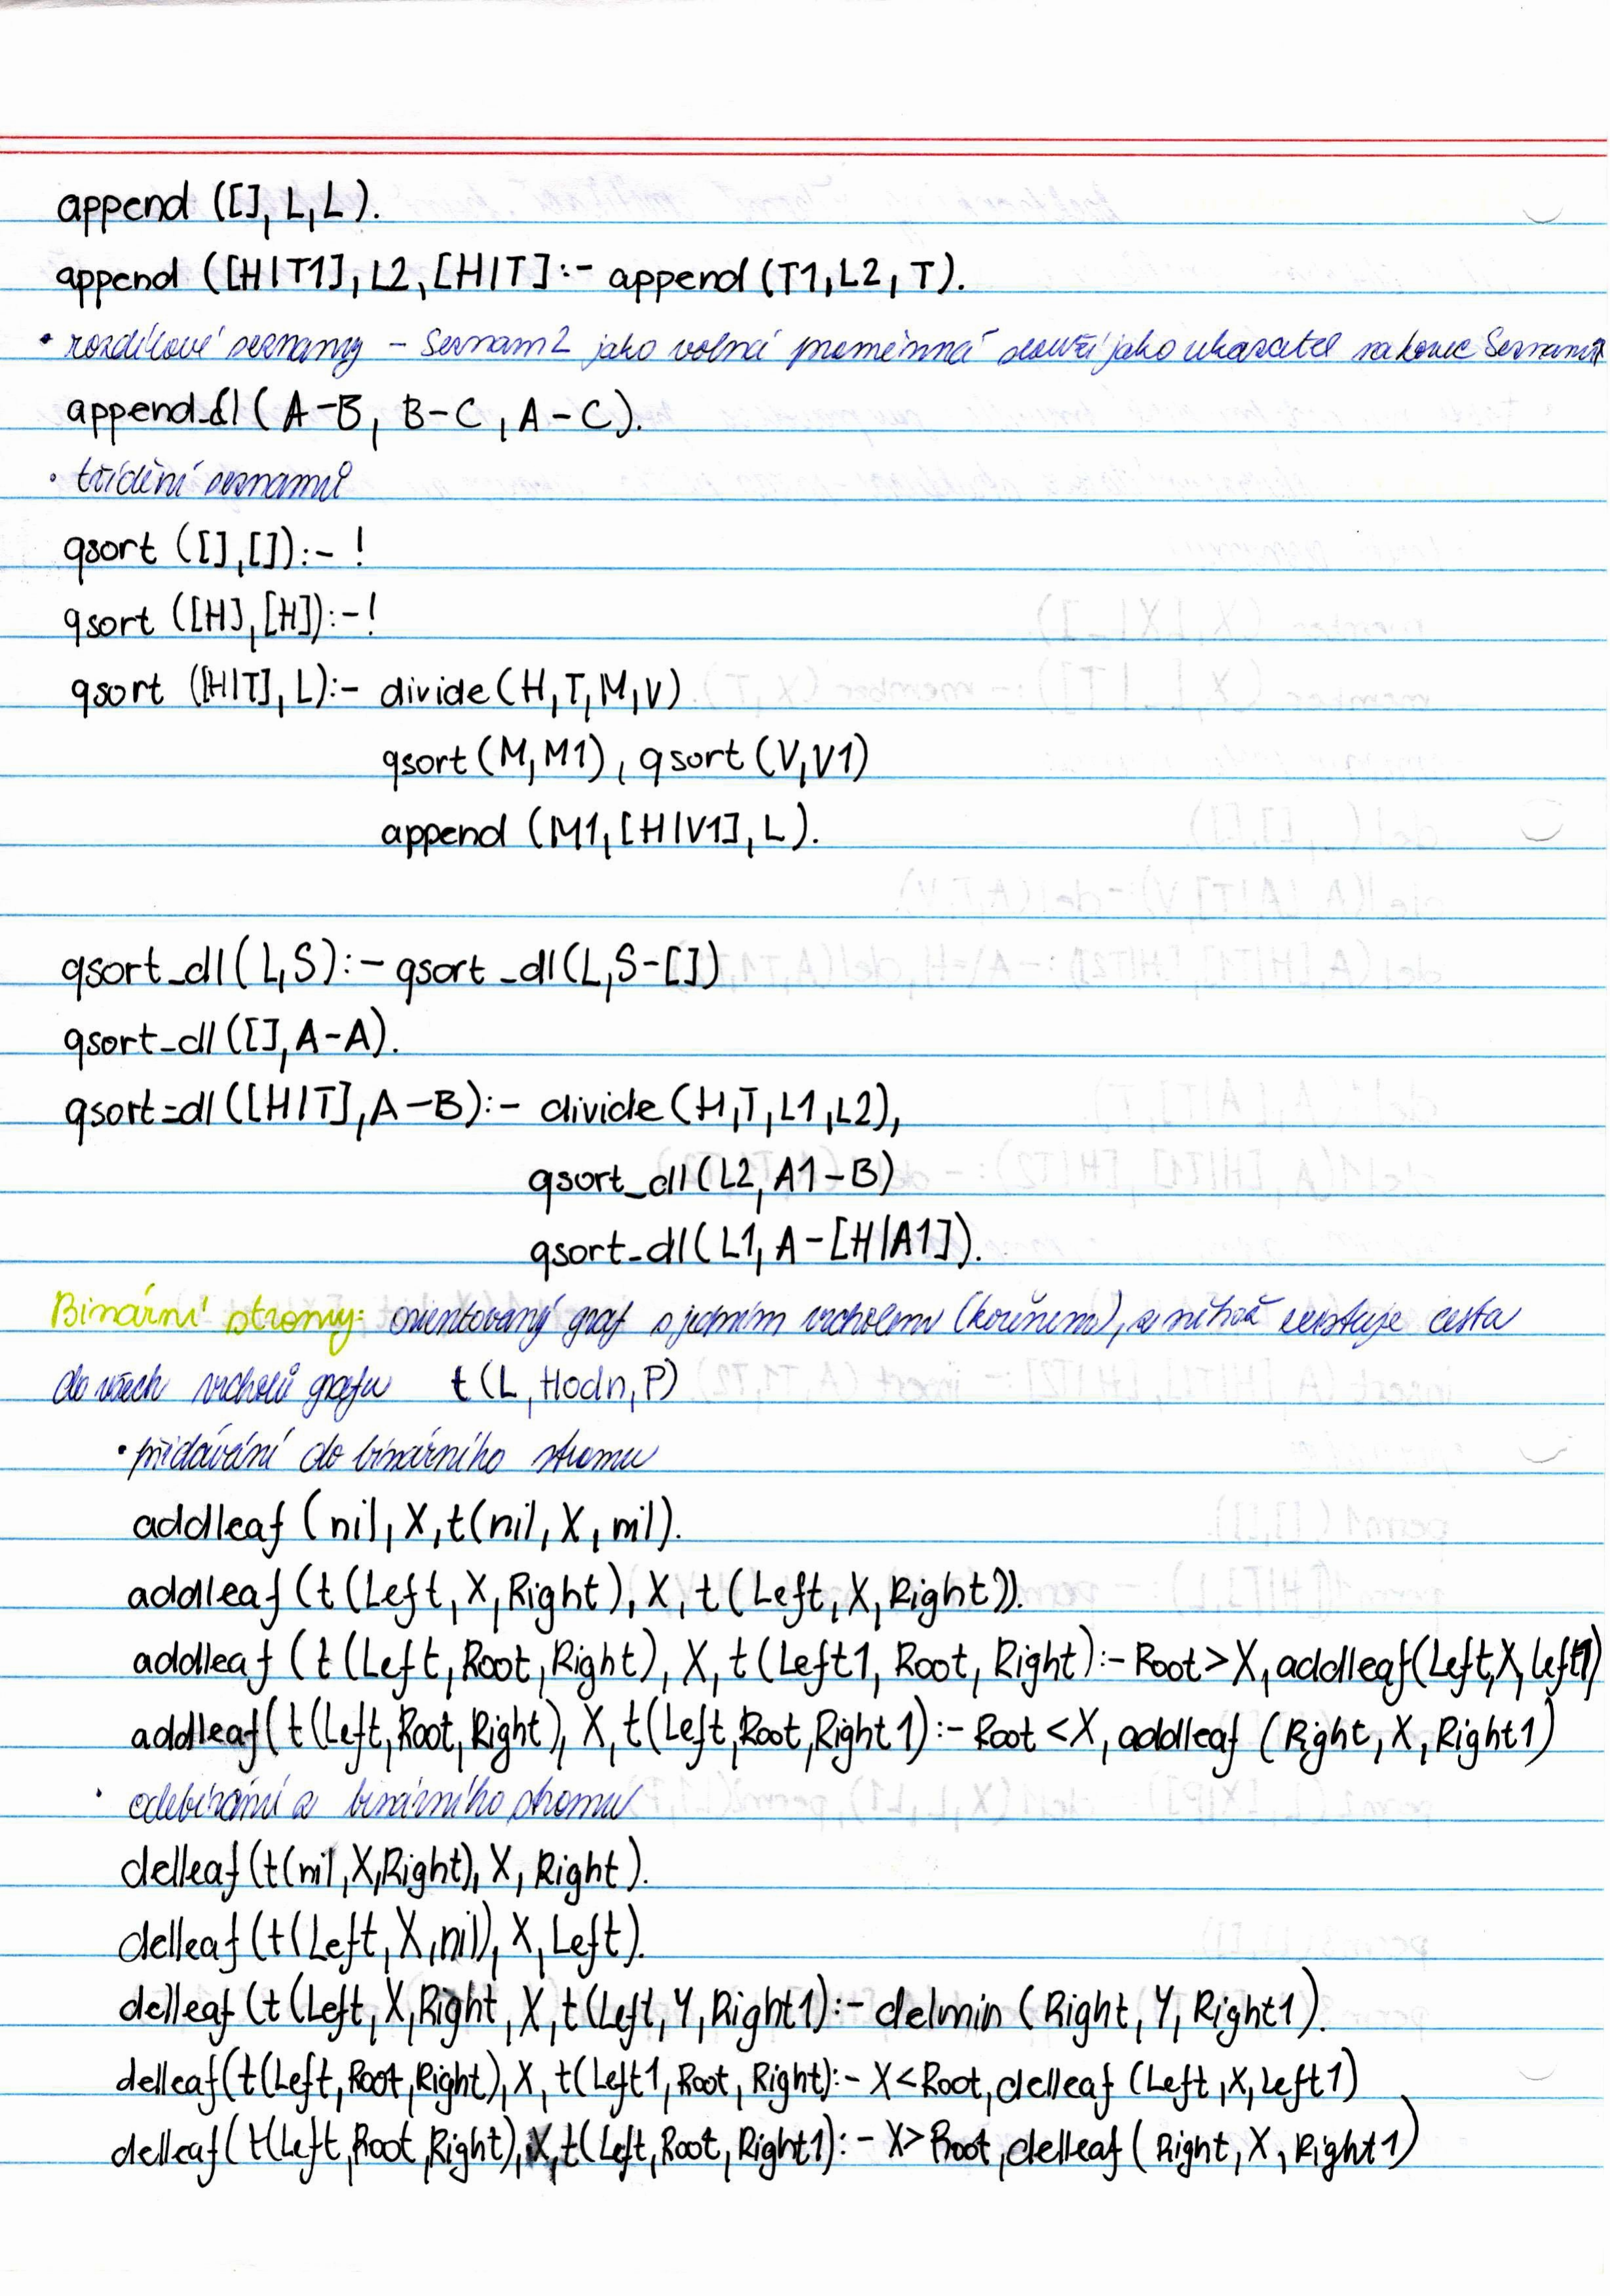 append ([], L,L).
append ([H|T1], L2, [H|T] :- append (T1, L2, T).
• rozdílové seznamy - Seznam2 jako volná proměnná slouží jako ukazatel na konec Seznam1
append_dl ( A-B, B-C, A-C).
• třídění seznamů
qsort ([],[]):- !
qsort ([H],[H]):-!
qsort ([H|T], L):- divide (H,T,M,V)
qsort (M,M1), qsort (V,V1)
append (M1,[H|V1], L).
qsort_dl (L,S):- qsort_dl(L,S-[])
qsort_dl ([],A-A).
qsort=dl ([H|T],A-B):- divide (H,T,L1,L2),
qsort_dl(L2, A1-B)
qsort_dl(L1, A-[H|A1]).
Binární stromy: orientovaný graf s jedním vrcholem (kořenem), z něhož existuje cesta
do všech vrcholů grafu t (L, Hodn, P)
• přidávání do binárního stromu
addleaf (nil, X, t(nil, X, nil).
addleaf (t (Left, X, Right), X, t (Left, X, Right)).
addleaf (t (Left, Root, Right), X, t (Left1, Root, Right) :- Root > X, addleaf(Left,X,left1)
addleaf( t(Left, Root, Right), X, t(Left, Root, Right1) :- Root < X, addleaf (Right, X, Right1)
• odebírání z binárního stromu
delleaf (t(nil, X,Right), X, Right).
delleaf (t(Left, X, nil), X, Left).
delleaf (t (Left, X, Right, X, t (Left, Y, Right1) :- delmin (Right, Y, Right1).
delleaf(t(Left, Root, Right), X, t(Left1, Root, Right):- X < Root, delleaf (Left, X, left1)
delleaf( t(Left, Root, Right), X, t(Left, Root, Right1) :- X > Root, delleaf ( Right, X, Right1)